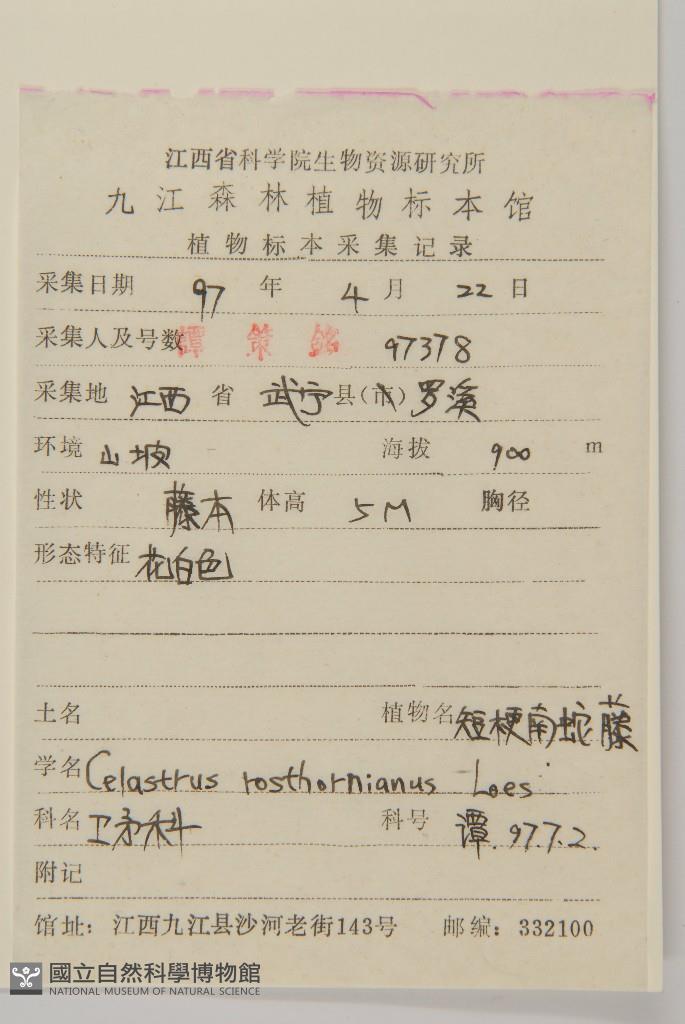 江西省科学院生物资源研究所
九江森林植物标本馆
植物标本采集记录
采集日期 97 年 4 月 22 日
采集人及号数 譚策銘 97378
采集地 江西 省 武宁 县(市) 罗溪
环境 山坡 海拔 900 m
性状 藤本 体高 5M 胸径
形态特征 花白色
土名 植物名 短梗南蛇藤
学名 Celastrus rosthornianus Loes
科名 卫矛科 科号 谭.97.7.2.
附记
馆址：江西九江县沙河老街143号 邮编：332100
國立自然科學博物館
NATIONAL MUSEUM OF NATURAL SCIENCE